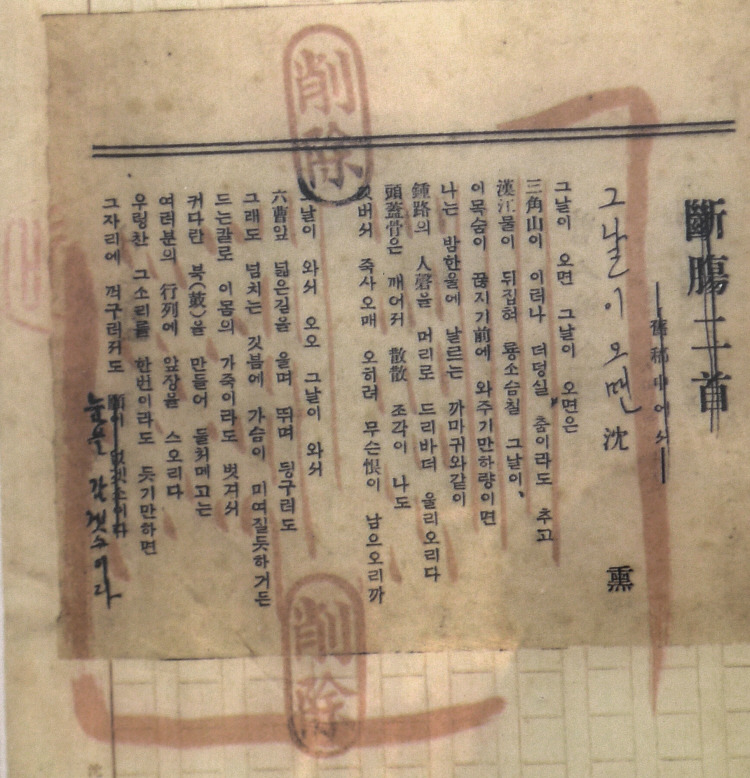 斷膓二首
舊稿中에서
그날이 오면 沈 熏
그날이 오면 그날이 오면은
三角山이 이러나 더덩실 춤이라도 추고
漢江물이 뒤집혀 룡소슴칠 그날이,
이목숨이 끊지기前에 와주기만하량이면
나는 밤한울에 날르는 까마귀와같이
鍾路의 人磬을 머리로 드리바더 울리오리다
頭蓋骨은 깨어저 散散 조각이 나도
깃버서 죽사오매 오히려 무슨恨이 남으오리까
그날이 와서 오오 그날이 와서
六曹앞 넓은길을 울며 뛰며 딩구러도
그래도 넘치는 깃븜에 가슴이 미여질듯하거든
드는칼로 이몸의 가죽이라도 벗겨서
커다란 북(鼓)을 만들어 둘처메고는
여러분의 行列에 앞장을 스오리다
우렁찬 그소리를 한번이라도 듯기만하면
그자리에 꺽구러저도 願이 없겟소이다
눈을 감겟소이다
削除
削除
沈